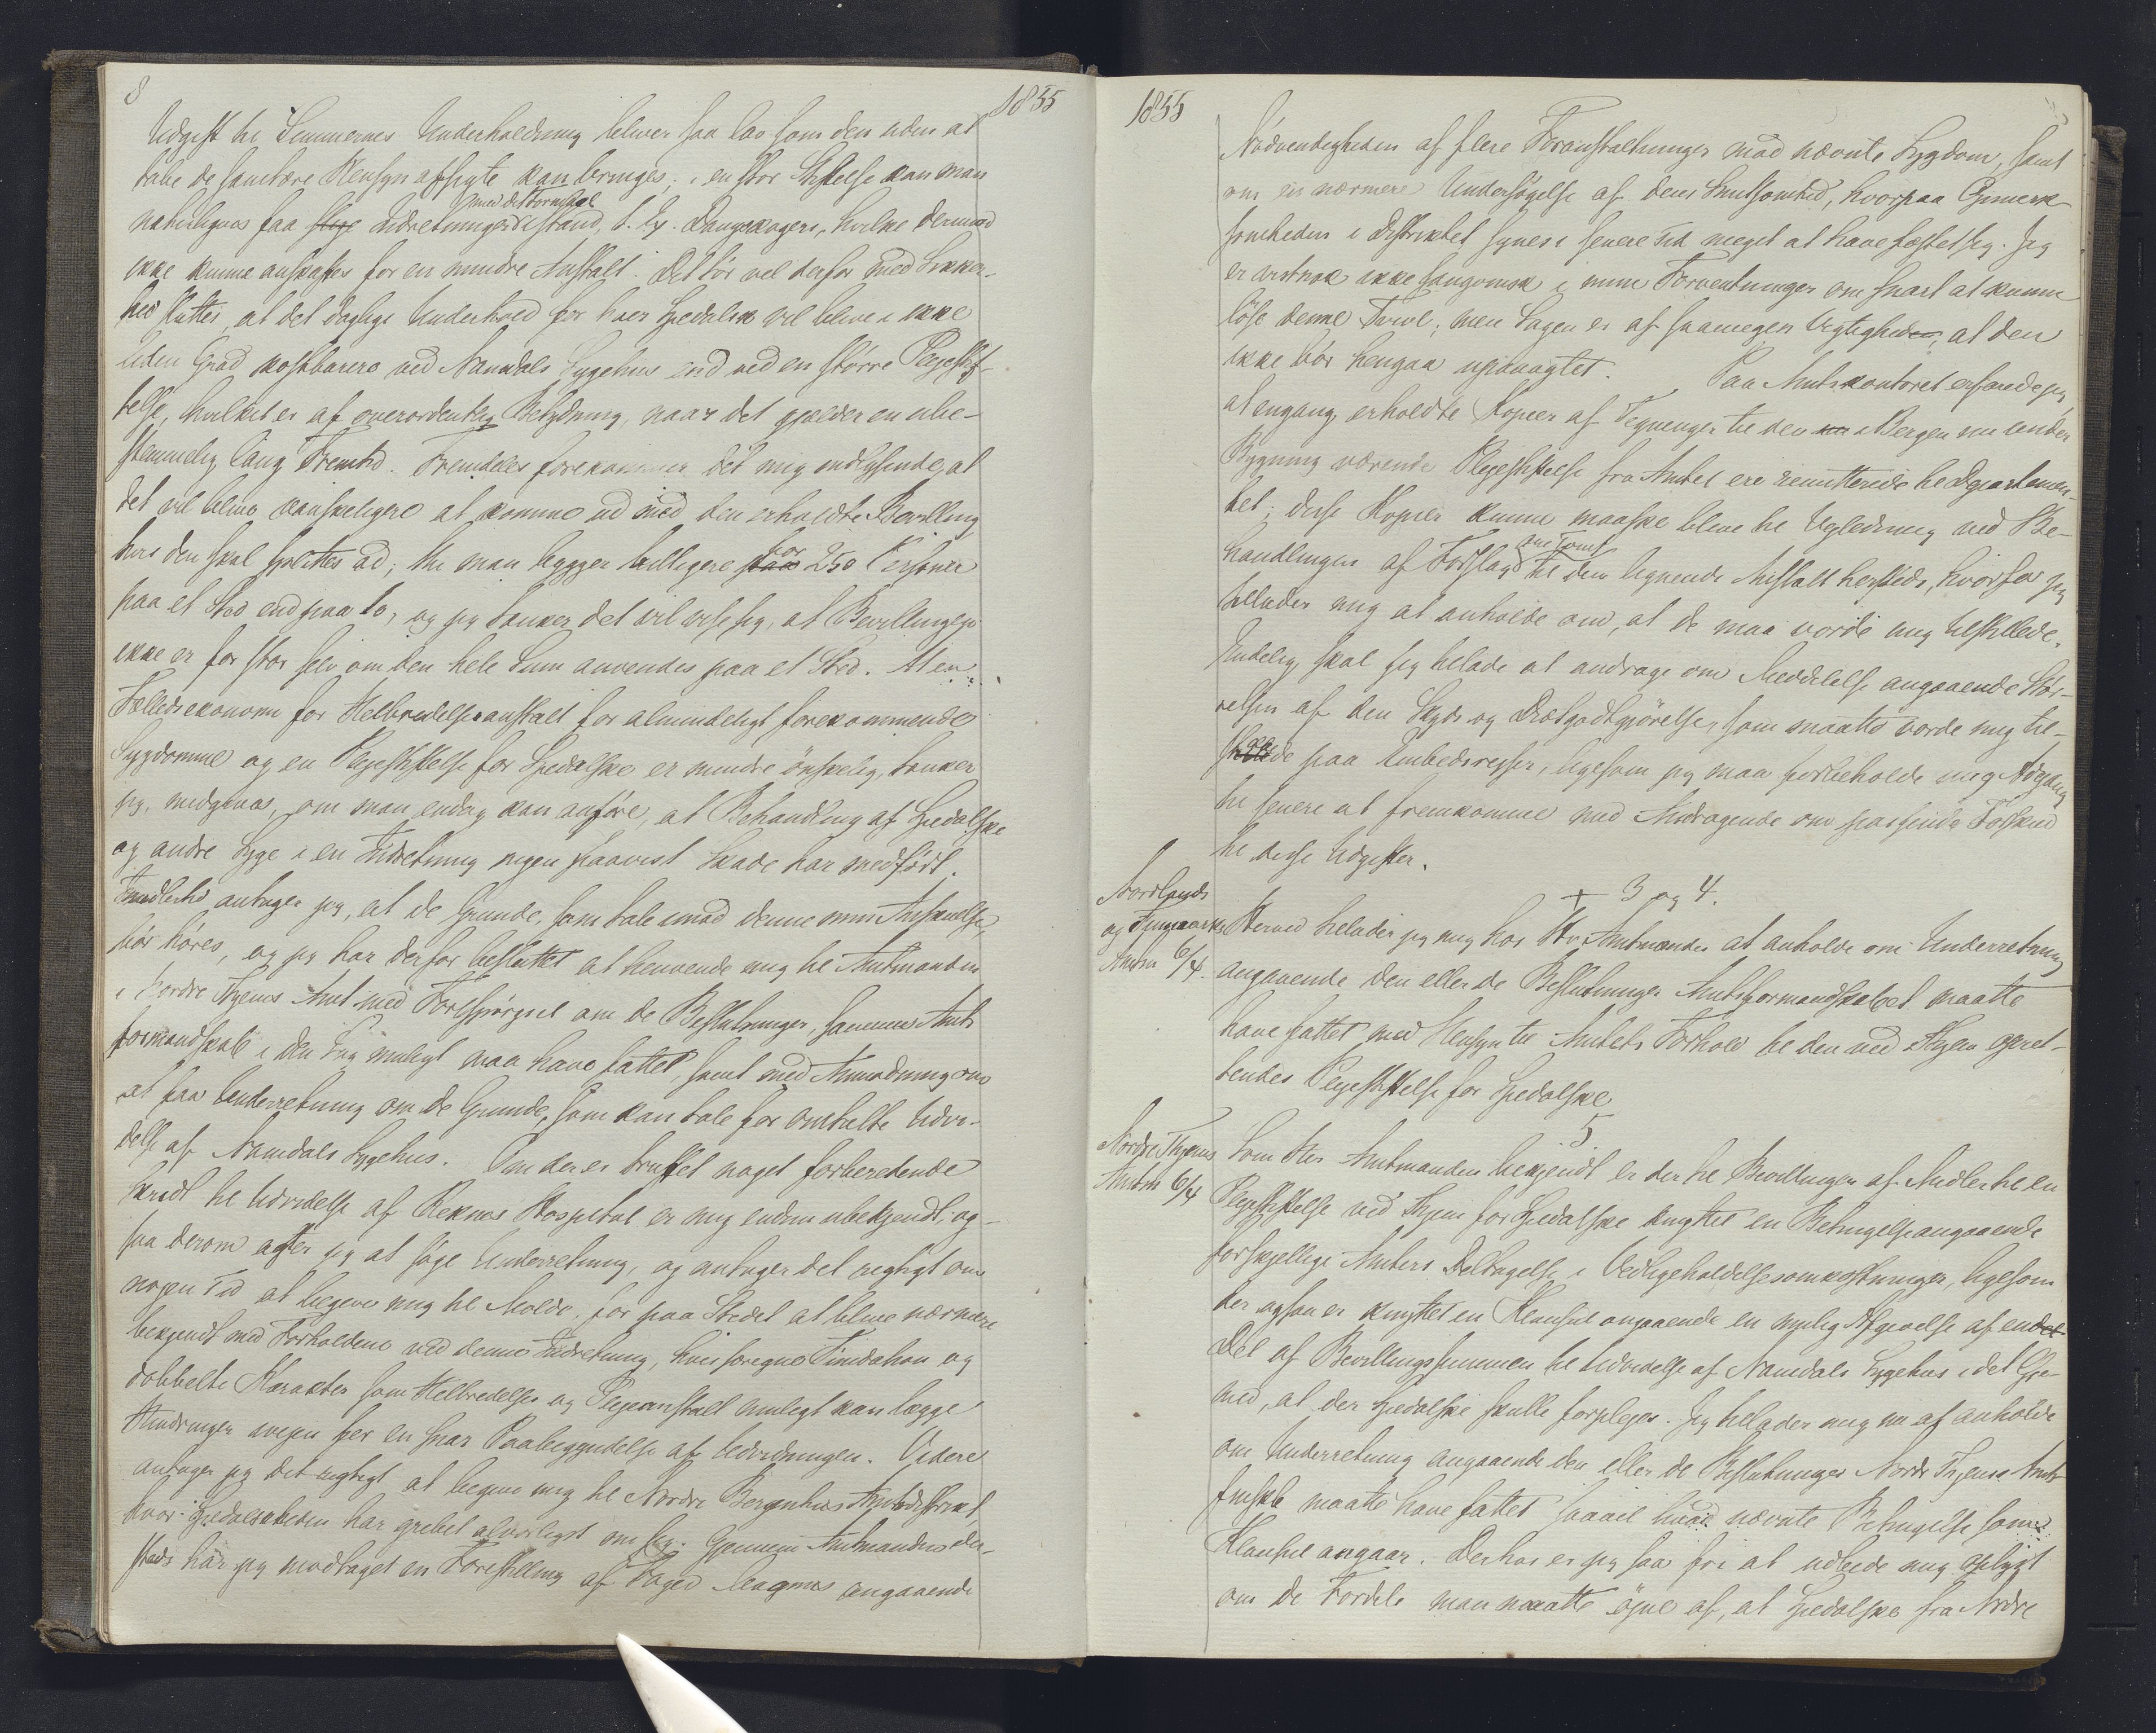 8
1855
Udgift til Lemmernes Underholdning bliver saa lav som den uden at
tabe de sanitære Hensyn afsigte kan bringes; i en stor Stiftelse kan man
naturligvis faa slige Indretninger med det Formaal istand, t. Ex. Dampkogeri, hvilke derimod
ikke kunne anskaffes for en mindre Anstalt. Det tör vel derfor med Sikker-
hed sluttes, at det daglige Underhold for hver Spedalsk vil blive i ikke
liden Grad kostbarere ved Namdals Sygehus end ved en större Plejestif-
telse, hvilket er af overordentlig Betydning, naar det gjelder en ube-
stemmelig lang Fremtid. Fremdeles forekommer det mig indlysende, at
det vil blive vanskeligere at komme ud med den erholdte Bevilling
hvis den skal splittes ad; thi man bygger billigere for 250 Personer
paa et Sted end paa to, og jeg tænker det vil vise sig, at Bevillingen
ikke er for stor selv om den hele Sum anvendes paa et Sted. At en
Fællesekonomi for Helbredelsesanstalt for almindeligt forekommende
Sygdomme og en Plejestiftelse for Spedalske er mindre önskelig, tænker
jeg, medgives, om man endog kan anföre, at Behandling af Spedalske
og andre Syge i en Indretning ingen paavist Skade har medfört.
Imidlertid antager jeg, at de Grunde, som tale imod denne min Anskuelse,
bör höres, og jeg har derfor besluttet at henvende mig til Amtmanden
i Nordre Thjems Amt med Forespörgsel om de Beslutninger, sammes Amts
formandskab i den Sag muligt maa have fattet, samt med Anmodning om
at faa Underretning om de Grunde, som kan tale for omtalte Udvi-
delse af Namdals Sygehus. Om der er truffet noget forberedende
Skridt til Udvidelse af Reknes Hospital er mig endnu ubekjendt; og-
saa derom agter jeg at söge Underretning, og antager det rigtigt om
nogen Tid at begive mig til Molde, for paa Stedet at blive nærmere
bekjendt med Forholdene ved denne Indretning, hvis foregne Fundation og
dobbelte Karakter som Helbredelses og Plejeanstalt muligt kan lægge
Hindringer ivejen for en snar Paabegyndelse af Udvidningen. Videre
antager jeg det rigtigt at begive mig til Nordre Bergenhus Amtsdistrikt
hvor Spedalskheden har grebet alvorligst om sig. Gjennem Amtmanden der-
steds har jeg modtaget en Forestilling af Foged Magnus angaaende
1855
Nödvendigheden af flere Foranstaltninger mod nævnte Sygdom, samt
om en nærmere Undersögelse af dens Smitsomhed, hvorpaa Opmerk-
somheden i Distriktet synes i senere Tid meget at have fæstet sig. Jeg
er vistnok ikke sangvinsk i mine Forventninger om snart at kunne
löse denne Tvivl; men Sagen er af saamegen Vigtighed, at den
ikke bör hengaa upaaagtet. Paa Amtskontoret erfarede jeg,
at engang erholdte Kopier af Tegninger til den i Bergen nu under
Bygning værende Plejestiftelse fra Amtet ere remitterede til Departemen-
tet; disse Kopier kunne maaske blive til Vejledning ved Be-
handlingen af Forslag om Tomt til den lignende Anstalt hersteds, hvorfor jeg
tillader mig at anholde om, at de maa vorde mig tilstillede.
Endelig skal jeg tillade at andrage om Meddelelse angaaende Stör-
relsen af den Skyds og Diætgodtgjörelse, som maatte vorde mig til-
staaede paa Embedsreiser, ligesom jeg maa forbeholde mig Adgang
til senere at fremkomme med Andragende om passende Forskud
til disse Udgifter.
+ 3 og 4.
Nordlands
og Finmarkens
Amtm 6/4.
Herved tillader jeg mig hos Hr. Amtmanden at anholde om Underretning
angaaende den eller de Beslutninger Amtsformandskabet maatte
have fattet med Hensyn til Amtets Forhold til den ved Thjem opret-
tendes Plejestiftelse for Spedalske
5.
Nordre Thjems
Amtm 6/4
Som Hr. Amtmanden bekjendt er der til Bevillingen af Midler til en
Plejestiftelse ved Thjem for Spedalske knyttet en Betingelse angaaende
forskjellige Amters Deltagelse i Vedligeholdelsesomkostninger, ligesom
der ogsaa er knyttet en Klausul angaaende en mulig Afgivelse af en
Del af Bevillingssummen til Udvidelse af Namdals Sygehus i det Öie-
med, at der Spedalske skulle forplejes. Jeg tillader mig nu at anholde
om Underretning angaaende den eller de Beslutninger Nordre Thjems Amts
fmskb maatte have fattet saavel hvad nævnte Betingelse som
Klausul angaar. Derhos er jeg saa fri at udbede mig oplyst
om de Fordele man maatte öjne af, at Spedalske fra Nordre